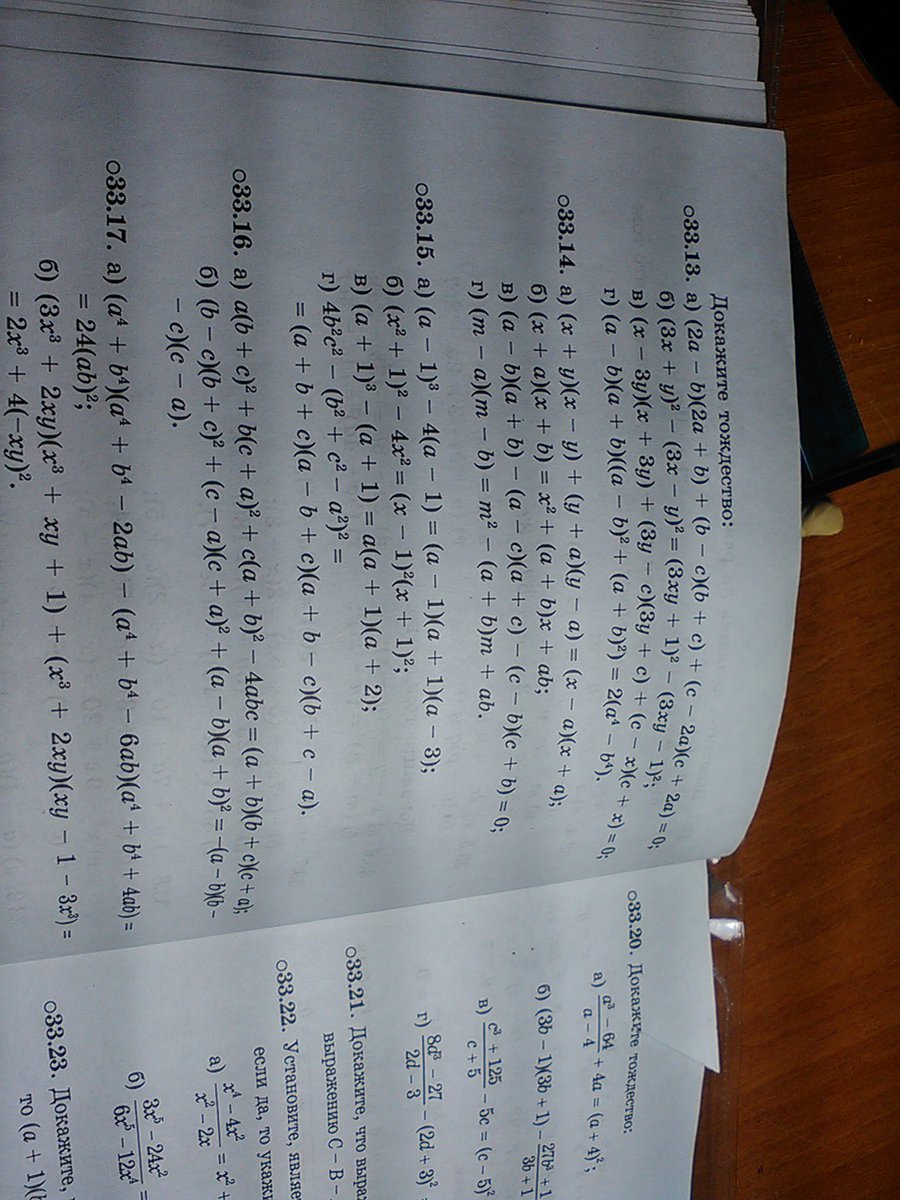 Докажите тождество:
○33.13. а) (2a − b)(2a + b) + (b − c)(b + c) + (c − 2a)(c + 2a) = 0;
б) (3x + y)² − (3x − y)² = (3xy + 1)² − (3xy − 1)²;
в) (x − 3y)(x + 3y) + (3y − c)(3y + c) + (c − x)(c + x) = 0;
г) (a − b)(a + b)((a − b)² + (a + b)²) = 2(a⁴ − b⁴).
○33.14. а) (x + y)(x − y) + (y + a)(y − a) = (x − a)(x + a);
б) (x + a)(x + b) = x² + (a + b)x + ab;
в) (a − b)(a + b) − (a − c)(a + c) − (c − b)(c + b) = 0;
г) (m − a)(m − b) = m² − (a + b)m + ab.
○33.15. а) (a − 1)³ − 4(a − 1) = (a − 1)(a + 1)(a − 3);
б) (x² + 1)² − 4x² = (x − 1)²(x + 1)²;
в) (a + 1)³ − (a + 1) = a(a + 1)(a + 2);
г) 4b²c² − (b² + c² − a²)² =
= (a + b + c)(a − b + c)(a + b − c)(b + c − a).
○33.16. а) a(b + c)² + b(c + a)² + c(a + b)² − 4abc = (a + b)(b + c)(c + a);
б) (b − c)(b + c)² + (c − a)(c + a)² + (a − b)(a + b)² = −(a − b)(b −
− c)(c − a).
○33.17. а) (a⁴ + b⁴)(a⁴ + b⁴ − 2ab) − (a⁴ + b⁴ − 6ab)(a⁴ + b⁴ + 4ab) =
= 24(ab)²;
б) (3x³ + 2xy)(x³ + xy + 1) + (x³ + 2xy)(xy − 1 − 3x³) =
= 2x³ + 4(−xy)².
○33.20. Докажите тождество:
а) (a³ − 64)/(a − 4) + 4a = (a + 4)²;
б) (3b − 1)(3b + 1) − (27b³ + 1)/(3b + 1)
в) (c³ + 125)/(c + 5) − 5c = (c − 5)²
г) (8d³ − 27)/(2d − 3) − (2d + 3)² =
○33.21. Докажите, что
выражению C − B −
○33.22. Установите,
если да, то
а) (x⁴ − 4x²)/(x² − 2x) = x² +
б) (3x⁵ − 24x²)/(6x⁵ − 12x⁴) =
○33.23. Докажите,
то (a + 1)(